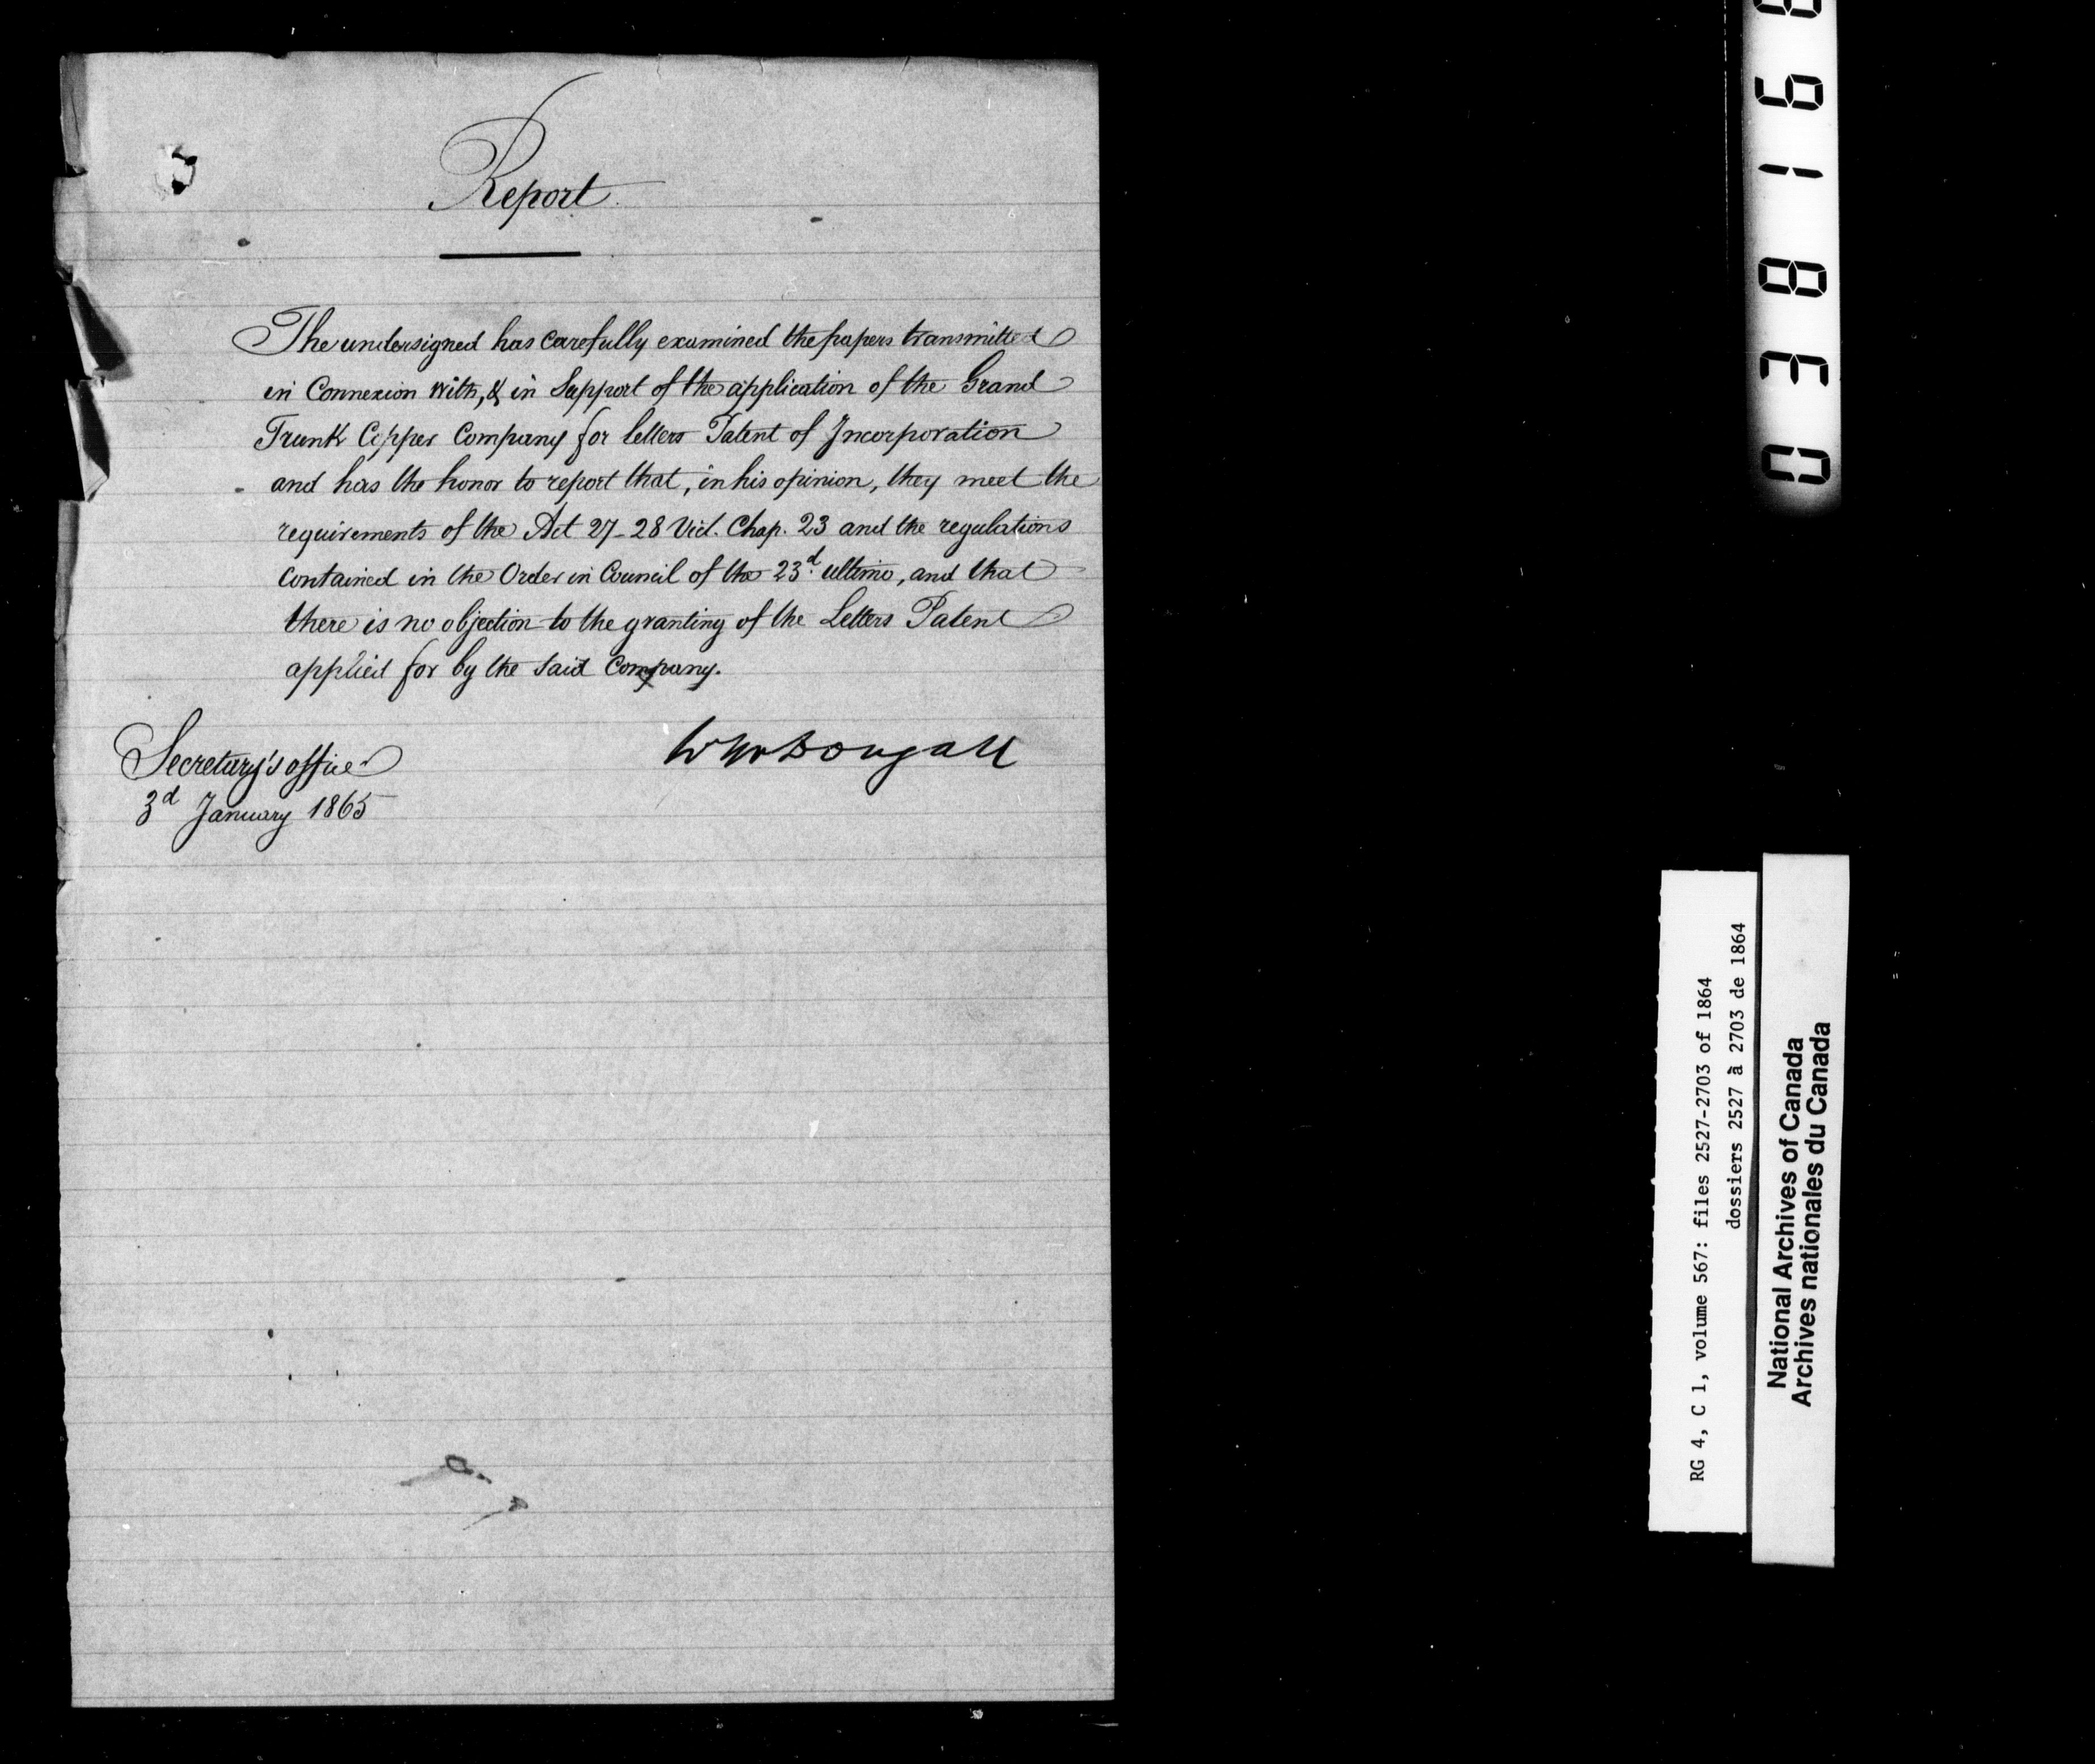 Report
The undersigned has carefully examined the papers transmitted
in Connexion with, & in Support of the application of the Grand
Trunk Copper Company for letters Patent of Incorporation
and has the honor to report that, in his opinion, they meet the
requirements of the Act 27-28 Vict. Chap. 23 and the regulations
contained in the Order in Council of the 23d. ultimo, and that
there is no objection to the granting of the Letters Patent
applied for by the said Company.
W McDougall
Secretary's office
3d January 1865
RG 4, C 1, volume 567: files 2527-2703 of 1864
dossiers 2527 à 2703 de 1864
National Archives of Canada
Archives nationales du Canada